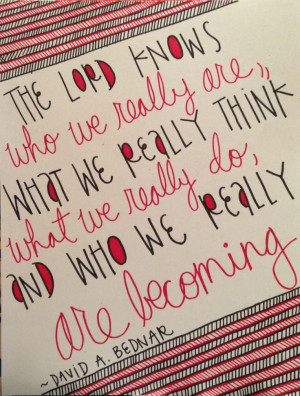 THE LORD KNOWS
who we really are,
WHAT WE REALLY THINK
what we really do,
AND WHO WE REALLY
are becoming
~DAVID A. BEDNAR